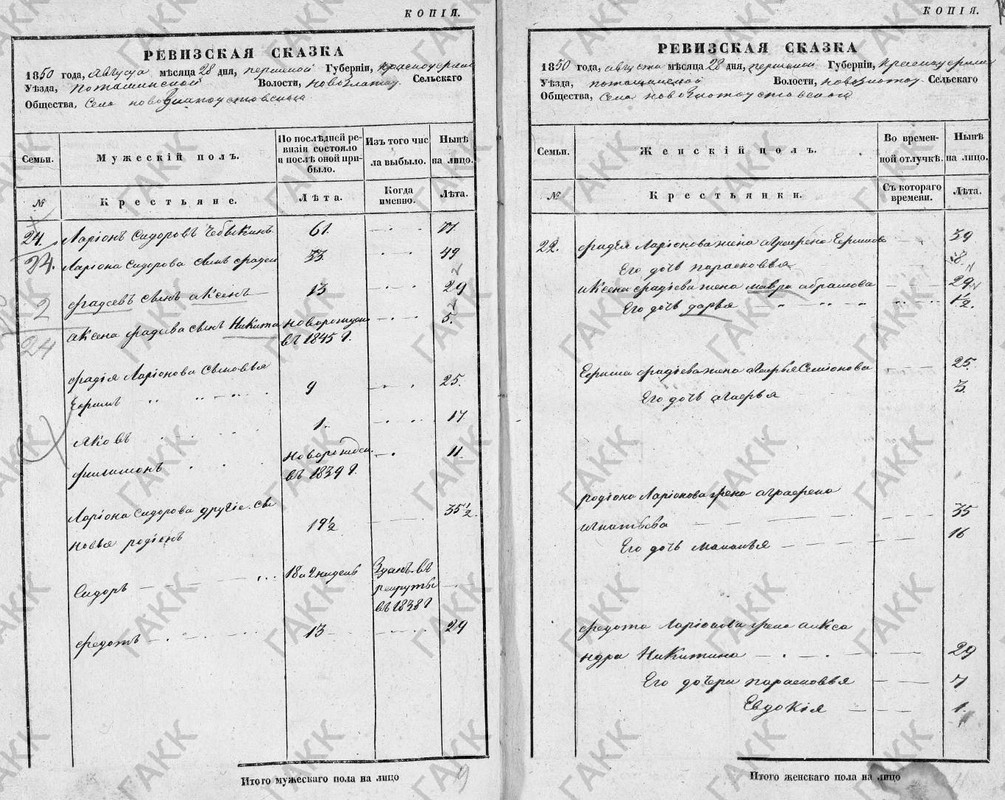 КОПІЯ.
РЕВИЗСКАЯ СКАЗКА
1850 года, Августа мѣсяца 28 дня, пермской Губерніи, Красноуфимс
Уѣзда, поташинской Волости, новозлатоу Сельскаго
Общества, Села новозлатоустовскаго
Семьи. Мужескій полъ. По послѣдней ревизіи состояло и послѣ оной прибыло. Изъ того числа выбыло. Нынѣ на лицо.
№ Крестьяне. Лѣта. Когда именно. Лѣта.
24. Ларіонъ Сидоровъ 61. 77
24. Ларіона Сидорова сынъ фадей 33 49
2 фадеевъ сынъ аксенъ 13 29
24 аксена фадеева сынъ Никита новорожден въ 1845 г. 5.
фадія Ларіонова сыновья
Ефимъ 9 25.
Яковъ 1. 17
филимонъ новорожден въ 1839 г. 11.
Ларіона Сидорова другіе сы
новья родіонъ 19½ 35½.
Сидоръ 18 и 2 недель Зданъ въ рекруты въ 1838 г.
федотъ 13 29
Итого мужескаго пола на лицо
9
КОПІЯ.
РЕВИЗСКАЯ СКАЗКА
1850 года, августа мѣсяца 28 дня, пермской Губерніи, Красноуфимс
Уѣзда, поташинской Волости, новозлатоу Сельскаго
Общества, Села новозлатоустовскаго
Семьи. Женскій полъ. Во временной отлучкѣ. Нынѣ на лицо.
№ Крестьянки. Съ котораго времени. Лѣта.
22. фадія Ларіонова жена аграфена Ефимова 39
Его дочь парасковья 8.
аксена фадіева жена мавра абрамова 29.
Его дочь дарья 1½.
Ефима фадіева жена Марья Семіонова 25.
Его дочь агафья 3.
родіона Ларіонова жена аграфена
игнатьева 35
Его дочь маланья 16
федота Ларіонова жена алекса
ндра Никитина 29
Его дочери парасковья 7
Евдокія 1.
Итого женскаго пола на лицо
ГАКК